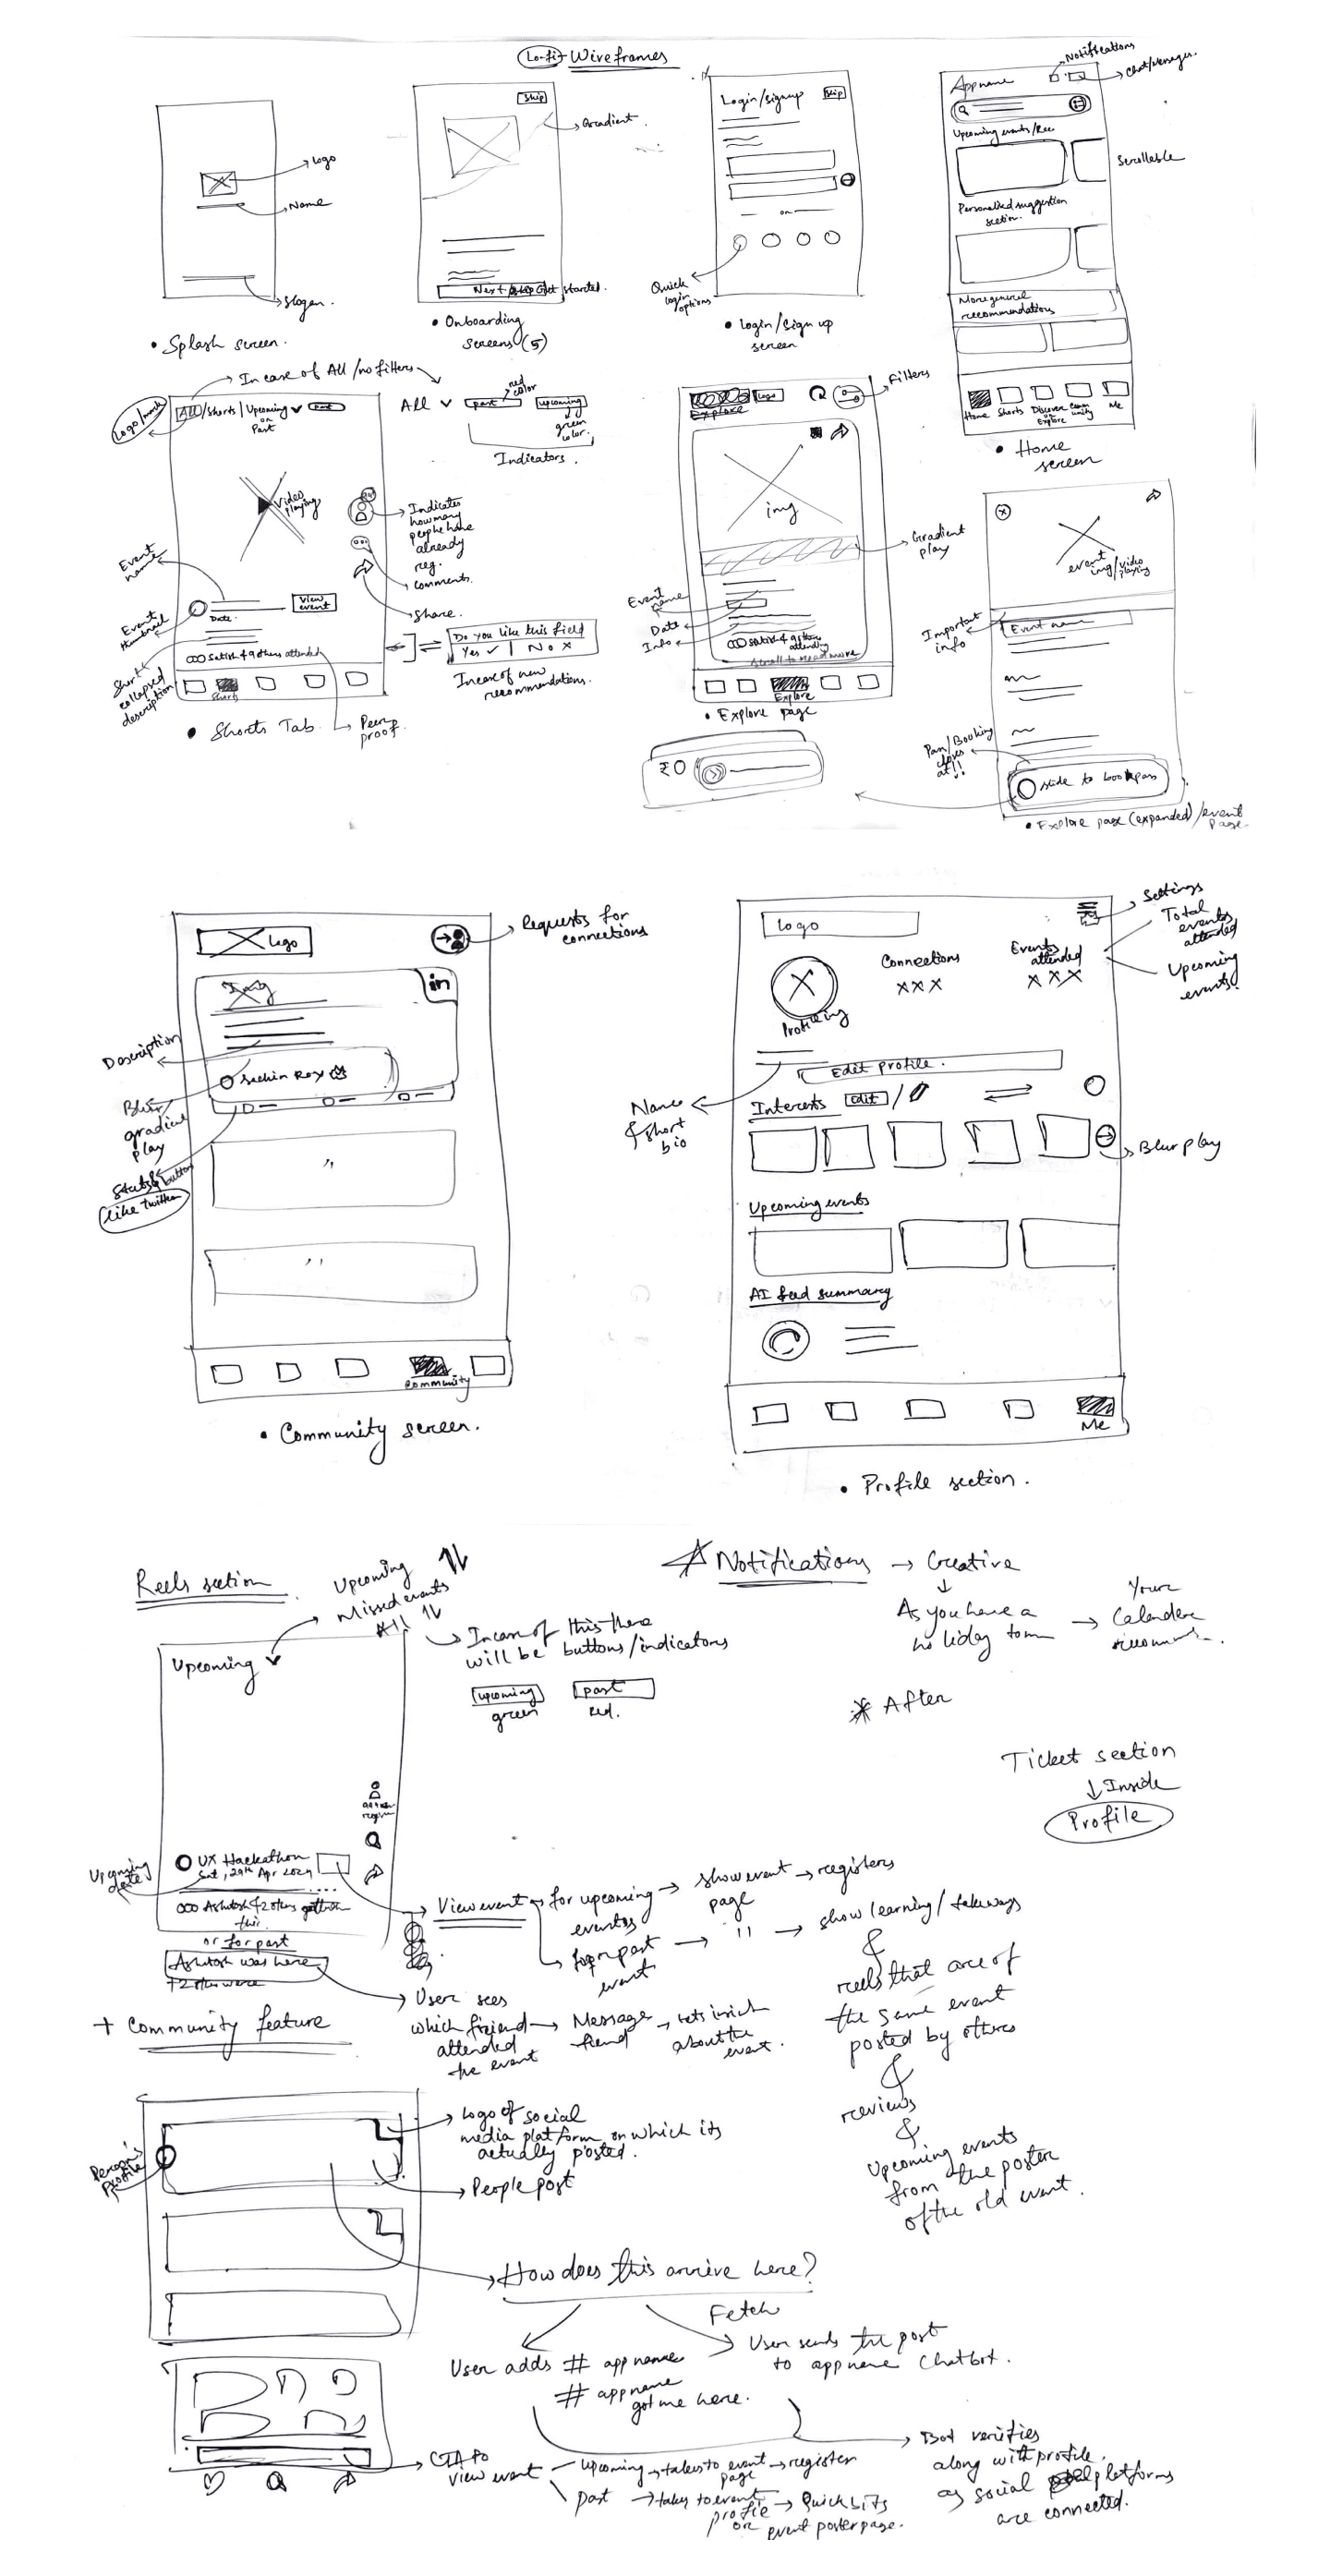 Lo-fi Wireframes
Logo
Name
Slogan.
• Splash screen.
Skip
Gradient
Next
Get started.
• Onboarding
screens (5)
Login/signup
Skip
or
Quick
login
options
• Login/Sign up
screen
Notifications
Chat/Messages.
App name
Upcoming events/Rec
Scrollable
Personalised suggestion
section.
More general
recommendations
Home
Shorts
Discover
or
Explore
Comm
unity
Me
• Home
screen
In case of All /no filters
Logo/
All/Shorts | Upcoming
or
Past
past
All
past
red
color
upcoming
green
color.
Indicators.
Video
playing
Indicates
how many
people have
already
reg.
comments.
Share.
Event
name
Event
thumbnail
View
event
Date.
Satish & 9 others attended
Short
collapsed
description
Shorts
Do you like this field
Yes ✓ | No x
In case of new
recommendations.
• Shorts Tab.
Peer
proof.
Logo
Explore
Filters
img
Gradient
play
Event
name
Date
Info
Satish & 9 others
attending
Scroll to read more
Explore
• Explore page
₹0
event
img/video
playing
Important
info
Event name
Pass/Booking
closes
at!!
slide to book pass
• Explore page (expanded) /event
page.
Logo
Requests for
connections
Img
in
Description
Sachin Roy
Blur/
gradient
play
Stats & button
like twitter
Community
• Community screen.
Logo
Settings
Total
events
attended
Upcoming
events.
Connections
x x x
Events
attended
x x x
Profile img
Edit profile.
Name
& short
bio
Interests
Edit
/
Blur play
Upcoming events
AI feed summary
Me
• Profile section.
Reels section
Upcoming
Missed events
All
Upcoming
In case of this there
will be buttons/indicators
upcoming
green
past
red.
Notifications → Creative
As you have a
holiday tom
→
Your
Calendar
* After
Ticket section
↓ Inside
Profile
Upcoming
date
UX Hackathon
Sat, 29th Apr 2024
Ashutosh & 2 others
this.
or for past
Ashutosh was here
+2 others were
View event
for upcoming
events
→ show event
page
→ registers
for past
event
→ " → show learning/takeways
&
reels that are of
the same event
posted by others
&
reviews
&
Upcoming events
from the poster
of the old event.
+ Community feature
User sees
which friend
attended
the event
→ Message
friend
about the
event.
Person's
profile
Logo of social
media platform on which its
actually posted.
People post
How does this arrive here?
Fetch
User adds # appname
# appname
got me here.
User sends the post
to appname Chatbot.
CTA to
view event
upcoming → takes to event
page
→ register
past → takes to event
profile
or
event poster page.
→ Quick bits
Bot verifies
along with profile.
as social platforms
are connected.